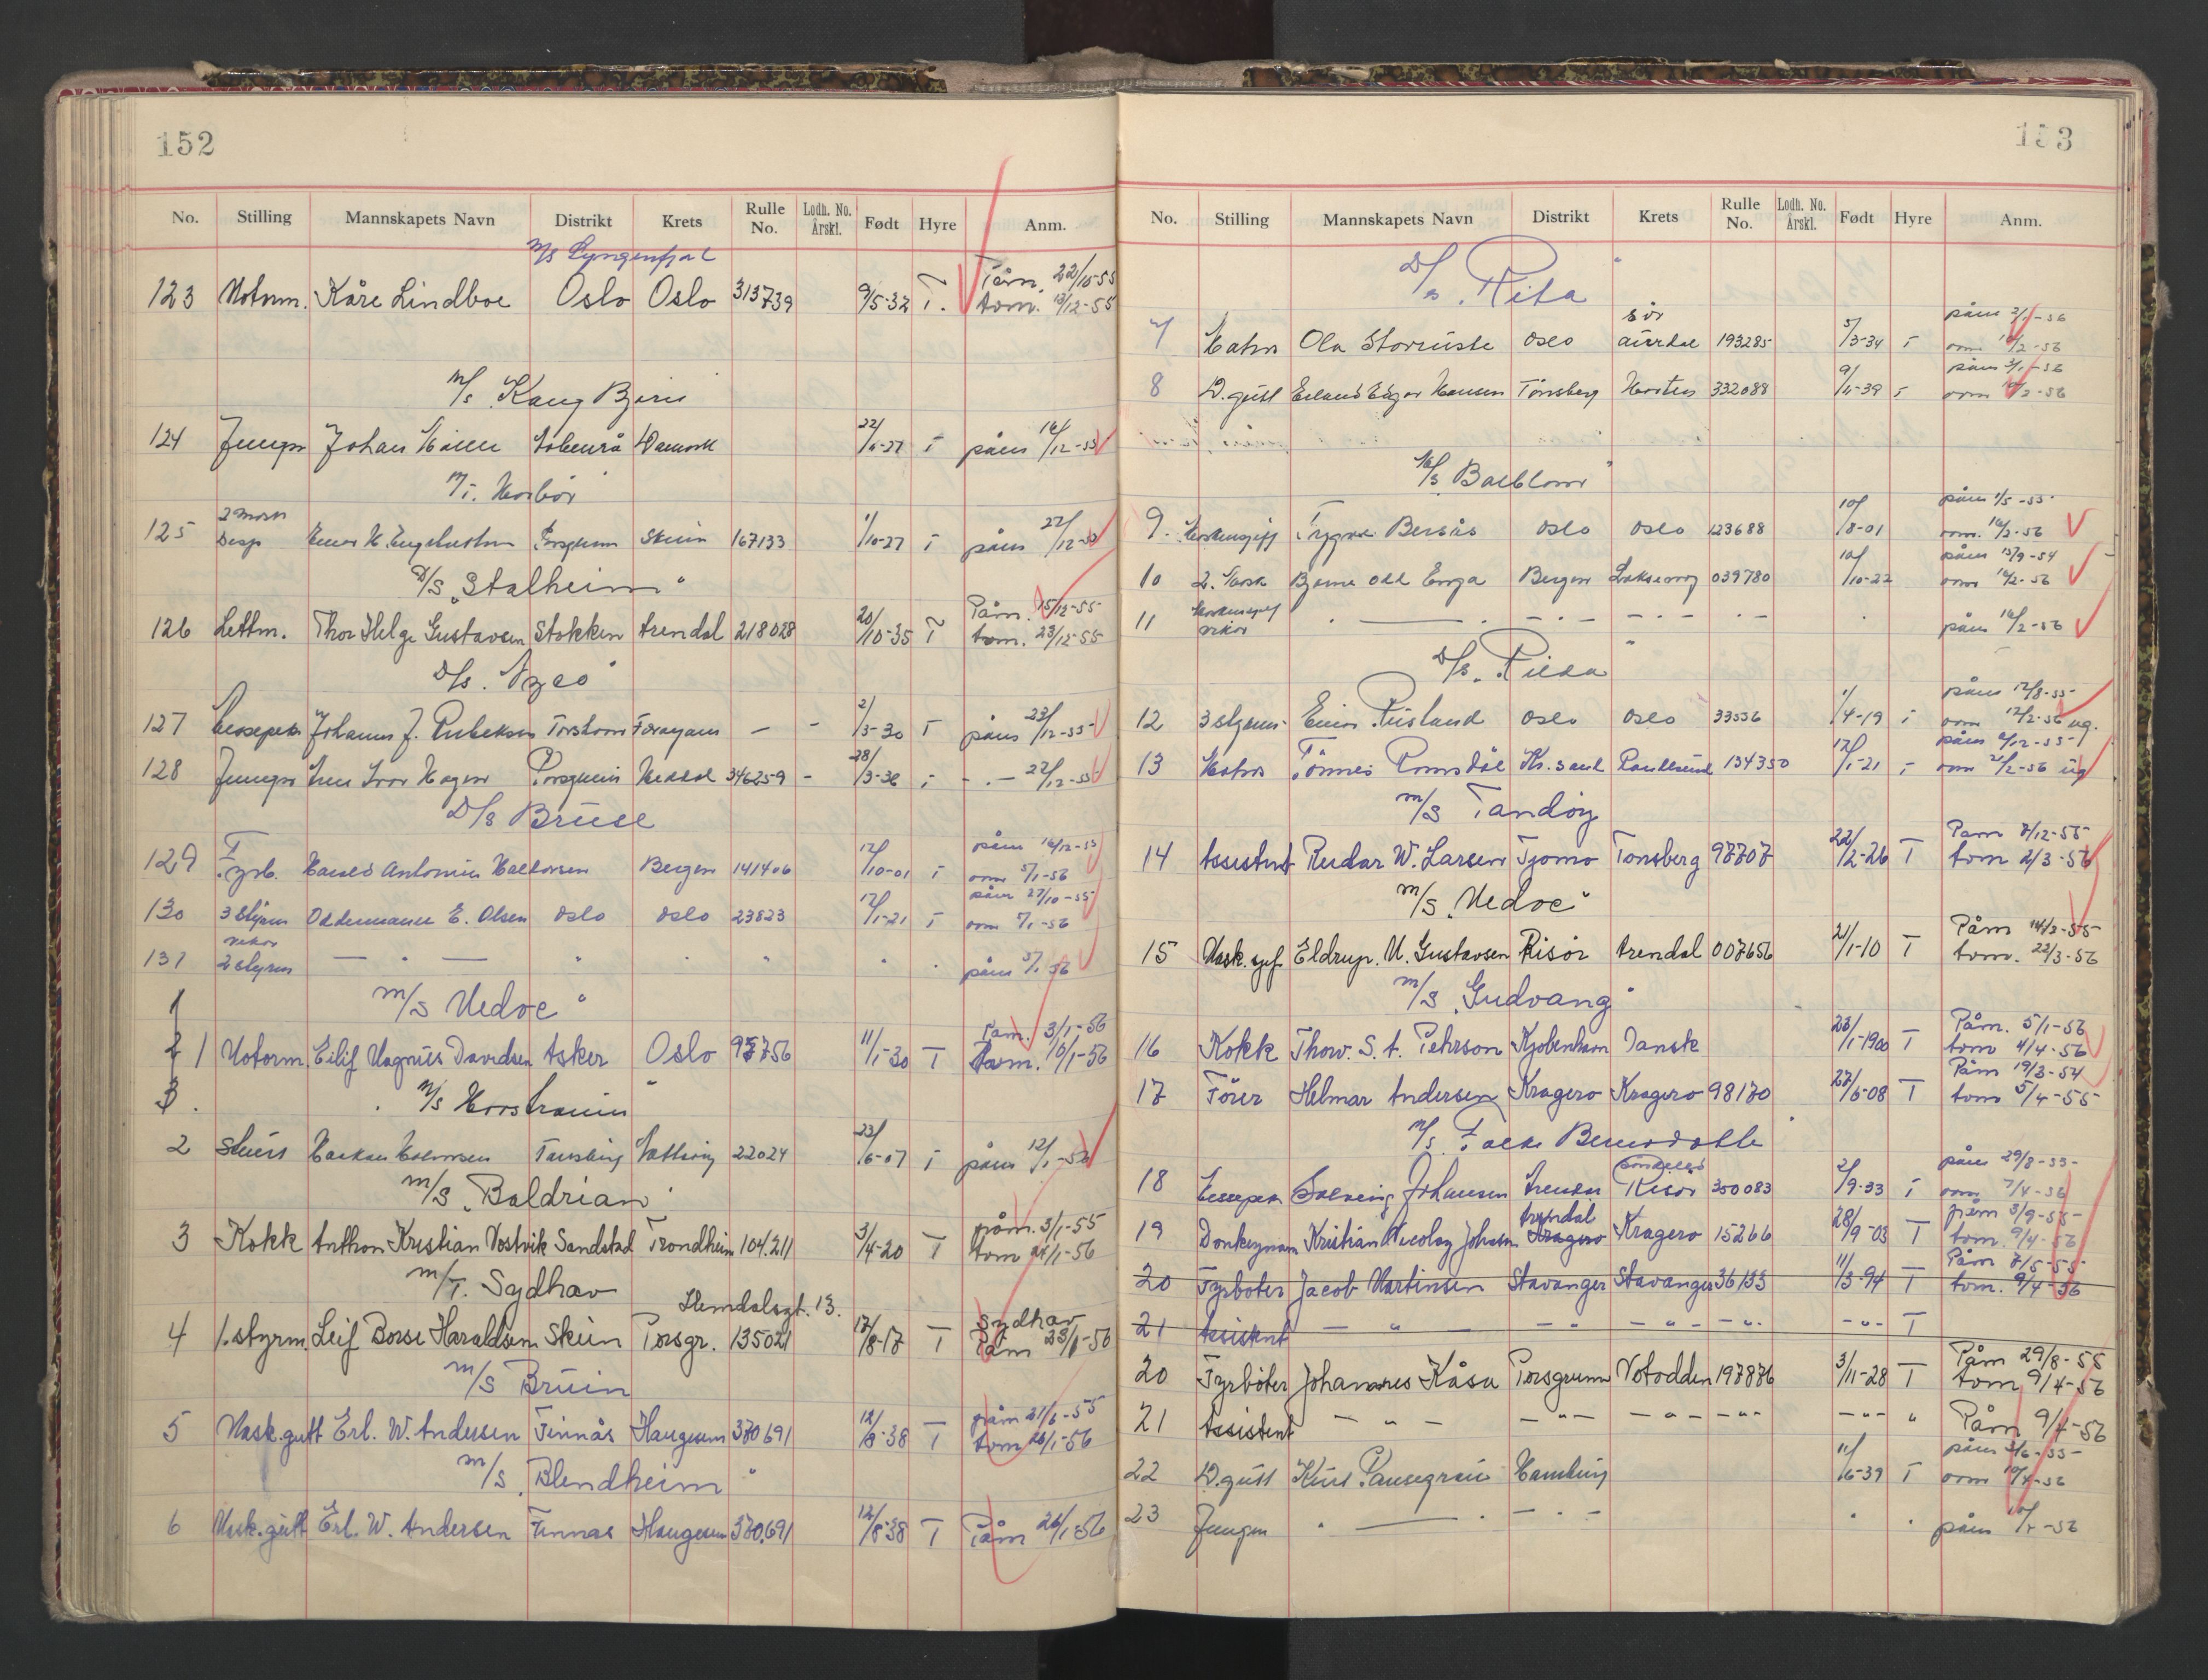 152
No. Stilling Mannskapets Navn Distrikt Krets Rulle No. Lodh. No. Årskl. Født Hyre Anm.
M/s Lyngenfjal
123 Motorm. Kåre Lindboe Oslo Oslo 313739 9/5-32 T. Påm. 22/10-55
tom. 13/12-55
M/s "Kong Bjørn"
124 Jungm Johan Danmark 22/6-27 T påm 16/12-55
M/T.
125 2 mask Desp Porsgrunn Skien 167133 1/10-27 T påm 22/12-55
D/S "Stalheim"
126 Lettm. Thor Helge Gustavsen Stokken Arendal 218028 20/10-35 T Påm. 15/12-55
tom. 23/12-55
D/s.
127 Johannes J. Torshavn Færøyane — - 2/3-30 T påm 23/12-55
128 Jungm Ivar Hagen Porsgrunn Heddal 346259 - 28/3-36 T - . - 22/12-55
D/S Bruse
129 Fyrb. Harald Antonius Halvorsen Bergen 141406 12/10-01 T påm 16/12-55
om 5/1-56
130 3 styrm Oddemann E. Olsen Oslo Oslo 23823 12/1-21 T påm 27/10-55
om 5/1-56
131 2 styrm — " — " " " " " påm 5/1 56
M/S "Nedoc"
1 Motorm. Eilif Magnus Davidsen Asker Oslo 97756 11/1-30 T Påm. 3/1-56
tom. 10/1-56
M/s
2 Stuert Haakon Halvorsen Tønsberg Nøtterøy 22024 23/6-07 T påm 12/1-56
M/S. "Baldrian"
3 Kokk Anthon Kristian Vostvik Sandstad Trondheim 104.211 3/4-20 T påm. 3/1-55
tom 24/1-56
M/T. Sydhav
Hemdalsgt. 13.
4 1. styrm. Leif Borse Haraldsen Skien Porsgr. 135021 17/8-17 T Sydhav
Påm 23/1-56
M/S Bruin
5 Mask.gutt Erl. W. Andersen Finnås Haugesun 370691 12/8-38 T påm 21/6-55
tom 26/1-56
M/S "Blendheim"
6 Mask.gutt Erl. W. Andersen Finnas Haugesun 370.691 12/8-38 T Påm 26/1-56
153
No. Stilling Mannskapets Navn Distrikt Krets Rulle No. Lodh. No. Årskl. Født Hyre Anm.
D/s "Rita"
7 Matros Ola Storruste Oslo Sør Aurdal 193285 5/3-34 T påm 2/1-56
om 16/2-56
8 D.gutt Erland Edgar Hansen Tønsberg Horten 332088 9/11-39 T påm 3/1-56
om 16/2-56
M/s "Balblom"
9. Trygve Bersås Oslo Oslo 123688 10/8-01 påm 1/5-55
om. 16/2-56
10 2. Mask Bjarne Odd Enga Bergen Laksevåg 039780 10/10-22 påm 15/9-54
om 16/2-56
11 Maskinsjef vikar — " — - " - - " - - " - påm 16/2-56
D/s. "Risa"
12 3 styrm. Einar Risland Oslo Oslo 33556 1/4-19 T påm 12/8-55
om 12/2-56 ug.
13 Matros Tønnes Romsdal Kr. sand Randesund 134350 12/1-21 T påm 6/12-55
om 21/2-56 ug
M/S Tandøy
14 Assistent Reidar W. Larsen Tjømo Tønsberg 97707 22/2-26 T Påm 7/12-55
tom 2/3-56
M/S. "Nedoc"
15 Mask.sjef. Eldrup. M. Gustavsen Risør Arendal 007656 21/1-10 T Påm 14/3-55
tom. 22/3-56
M/S. "Gudvang"
16 Kokk Thorv. S. A. Pehrson Kjøbenhavn Dansk 23/1-1900 T Påm. 5/1-56
tom 4/4-56
17 Fører Helmar Andersen Kragerø Kragerø 98170 27/6-08 T Påm 19/3-54
tom 5/4-55
M/s. "Folke Bernadotte"
18 Solveig Johansen Arendal Søndeled Risør 350083 2/9-33 T påm 29/8-55
om 7/4-56
19 Donkeyman Kristian Nicolay Johnsen Arendal Kragerø Kragerø 15266 28/9-03 T påm 3/9-55
tom. 9/4-56
20 Fyrbøter Jacob Martinsen Stavanger Stavanger 36133 11/3-94 T Påm 7/5-55
tom. 9/4-56
21 Assistent — " — — " — " — - " - - " - T
20 Fyrbøter Johannes Kåsa Porsgrunn Notodden 197876 3/11-28 T Påm 29/8-55
tom 9/4-56
21 Assistent — " — — " — — " — - " - - " - " Påm 9/4-56
22 D.gutt Kurt Pansegrau Hamburg 11/6-39 T påm 3/6-55
om 10/4-56
23 Jungm — " — - " - " " påm 10/4-56